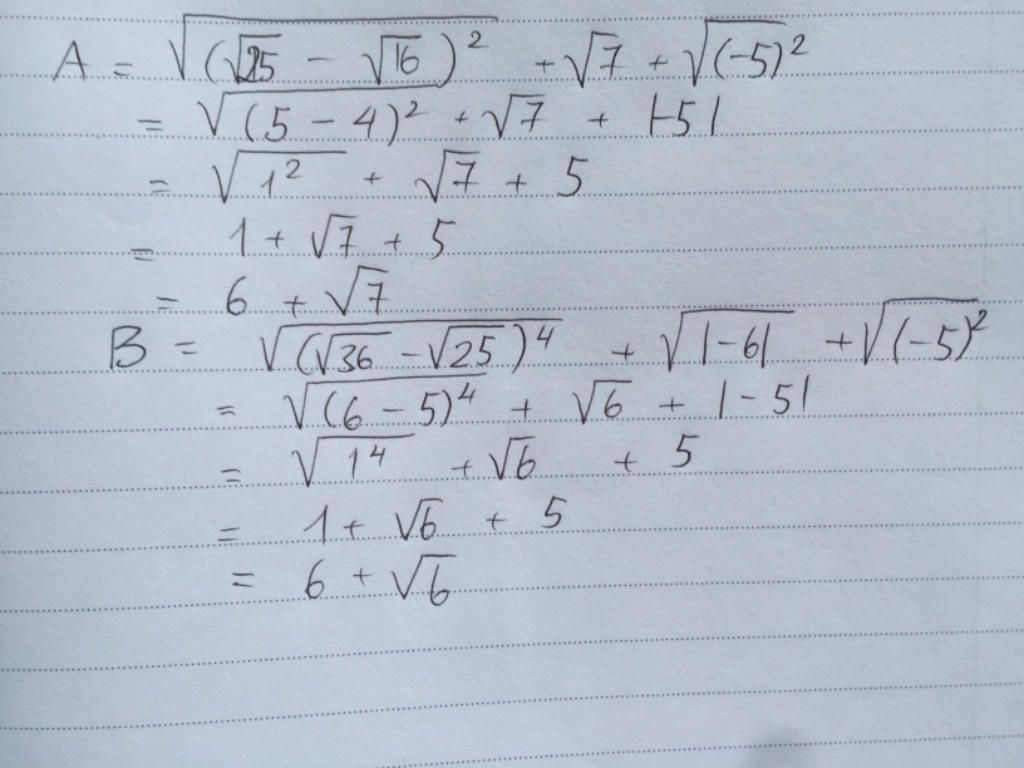 A = √(√25 − √16)² + √7 + √(−5)²
= √(5 − 4)² + √7 + |−5|
= √1² + √7 + 5
= 1 + √7 + 5
= 6 + √7
B = √(√36 − √25)⁴ + √|−6| + √(−5)²
= √(6 − 5)⁴ + √6 + |−5|
= √1⁴ + √6 + 5
= 1 + √6 + 5
= 6 + √6